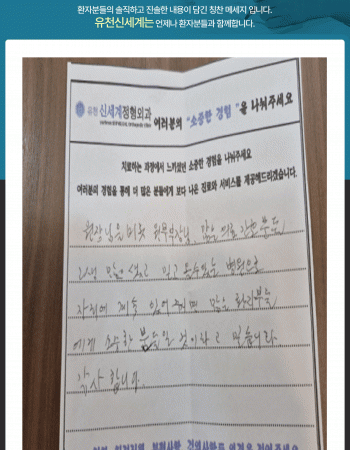 환자분들의 솔직하고 진솔한 내용이 담긴 칭찬 메세지 입니다.
유천신세계는 언제나 환자분들과 함께합니다.
유천 신세계정형외과
여러분의 "소중한 경험"을 나눠주세요
치료하는 과정에서 느끼셨던 소중한 경험을 나눠주세요
여러분의 경험을 통해 더 많은 분들에게 보다 나은 진료와 서비스를 제공해드리겠습니다.
원장님을 비롯 많은 의료
믿고 병원으로
자리에 계속 있어주시면 많은 환자분들
에게 소중한 분들일 것이라고 믿습니다
감사합니다.